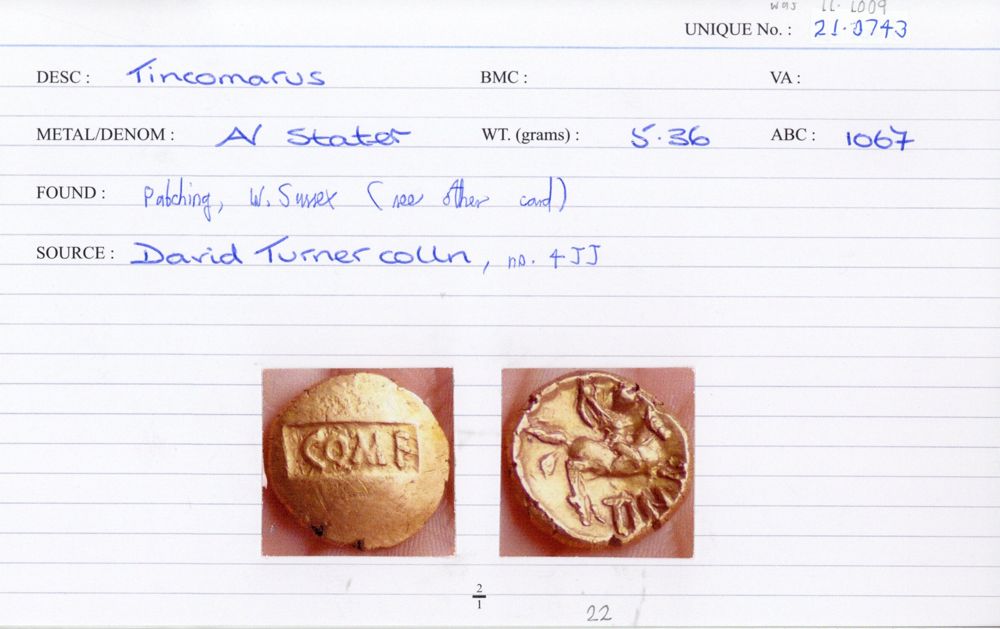 was 11.1009
UNIQUE No. : 21.0743
DESC : Tincomarus BMC : VA :
METAL/DENOM : AV Stater WT. (grams) : 5.36 ABC : 1067
FOUND : Patching, W. Sussex (see other card)
SOURCE : David Turner colln, no. 4JJ
COMF
TINC
2
1
22